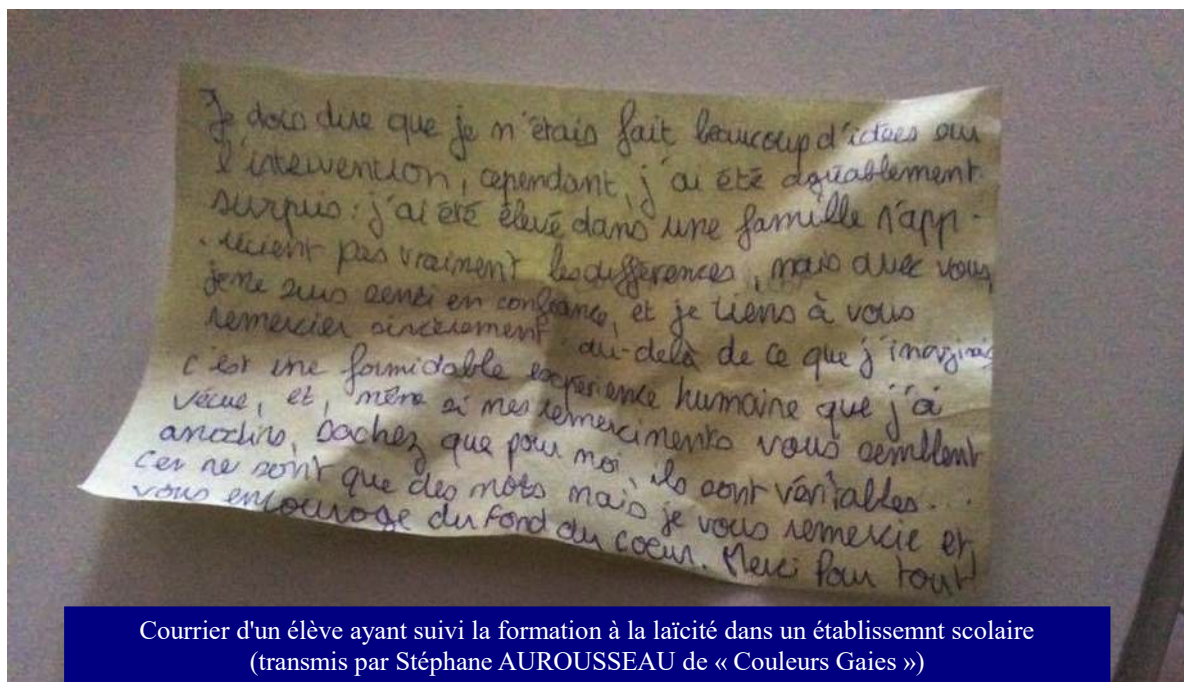 Je dois dire que je m'étais fait beaucoup d'idées sur
l'intervention, cependant, j'ai été agréablement
surpris : j'ai été élevé dans une famille n'app-
réciant pas vraiment les différences, mais avec vous,
je me suis senti en confiance, et je tiens à vous
remercier sincèrement. au-delà de ce que j'imaginais
c'est une formidable expérience humaine que j'ai
vécue, et, même si mes remerciments vous semblent
anodins, sachez que pour moi, ils sont véritables...
Ces ne sont que des mots mais je vous remercie et
vous encourage du fond du coeur. Merci Pour tout
Courrier d'un élève ayant suivi la formation à la laïcité dans un établissemnt scolaire
(transmis par Stéphane AUROUSSEAU de « Couleurs Gaies »)